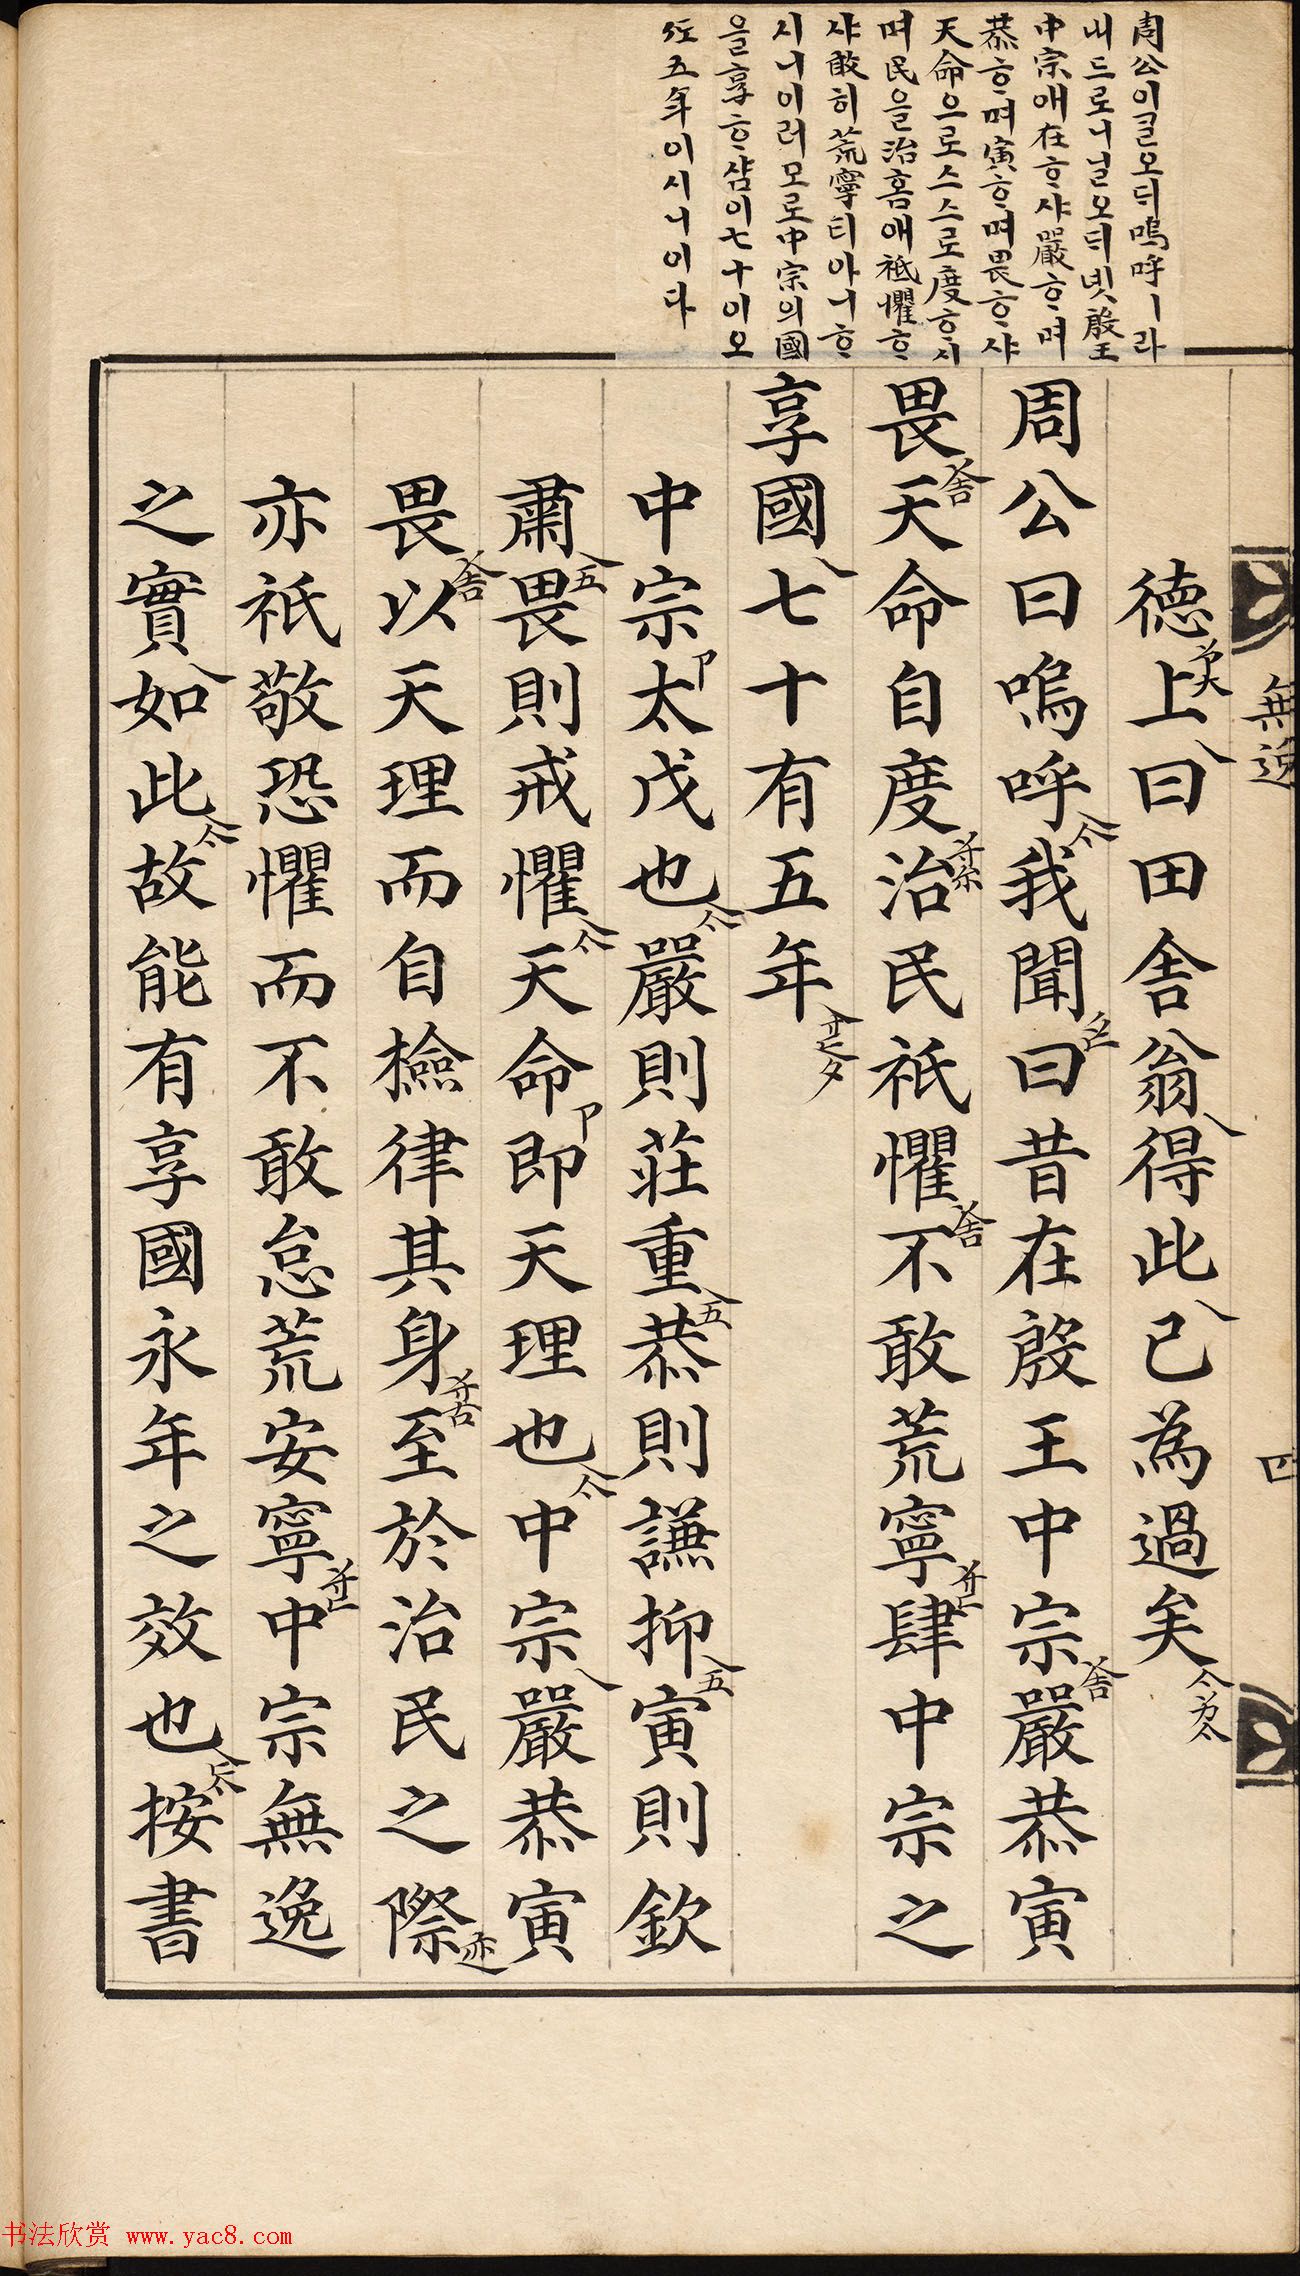 周公이ᄀᆞᆯ오ᄃᆡ嗚呼ㅣ라
내드로니닐오ᄃᆡ녯殷王
中宗애在ᄒᆞ샤嚴ᄒᆞ며
恭ᄒᆞ며寅ᄒᆞ며畏ᄒᆞ샤
天命으로스스로度ᄒᆞ시
며民을治홈애祗懼ᄒᆞ
샤敢히荒寧티아니ᄒᆞ
시니이러모로中宗의國
을享ᄒᆞ샴이七十이오
五年이시니이다
德上曰田舍翁得此已為過矣
周公曰嗚呼我聞曰昔在殷王中宗嚴恭寅
畏天命自度治民祗懼不敢荒寧肆中宗之
享國七十有五年
中宗太戊也嚴則莊重恭則謙抑寅則欽
肅畏則戒懼天命即天理也中宗嚴恭寅
畏以天理而自檢律其身至於治民之際
亦祗敬恐懼而不敢怠荒安寧中宗無逸
之實如此故能有享國永年之效也按書
無逸
四
书法欣赏 www.yac8.com